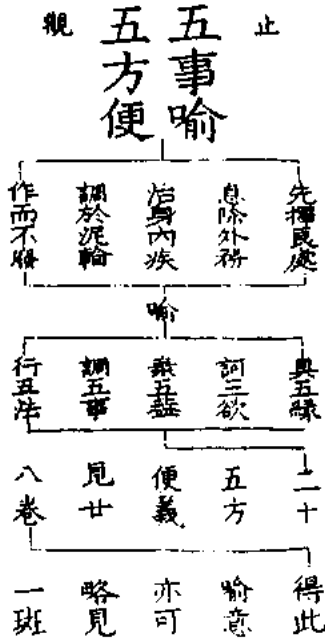 止
五事喻
五方便
觀
先擇良處
息除外務
治身內疾
調於泥輪
作而不廢
喻
具五緣
訶五欲
棄五蓋
調五事
行五法
二十
五方
便義
見廿
八卷
得此
喻意
亦可
略見
一斑